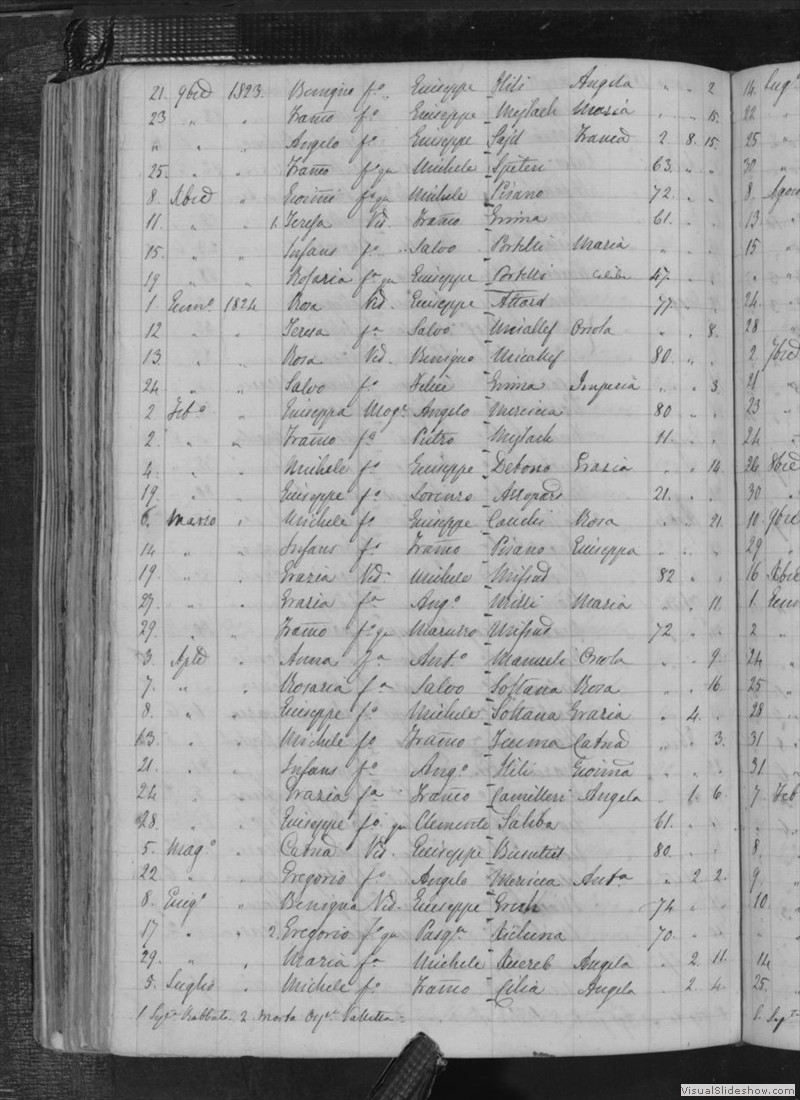 21. 9bre 1823. Benigno fo. Giuseppe Hili Angela " " 2
23 " " Franco fo Giuseppe Mejlach Maria " . 15.
" " " Angelo fo Giuseppe Sajd Franca 2 8. 15.
25. " " Franco fo qu Michele Spiteri 63. " "
8. Xbre " fo qu Michele Pisano 72. " "
11. " " 1. Teresa Vid. Franco Grima 61. " "
15. " " Infans fo Salvo Portelli Maria " " "
19 " " Rosaria fa qu Giuseppe Portelli 47. " "
1. Genno. 1824 Rosa Vid. Giuseppe Attard 77 " "
12 " " Teresa fa Salvo Micallef Orsola " " 8.
13. " " Rosa Vid. Benigno Micallef 80. " "
24 " " Salvo fo Felice Grima Imperia " " 3.
2. Febo " Giuseppa Moge. Angelo Mercieca 80 " "
2. " " Franco fo Pietro Mejlach 11. " "
4. " " Michele fo Giuseppe Debono Grazia " " 14.
19. " " Giuseppe fo Lorenzo 21. " "
6. Marzo " Michele fo Giuseppe Cauchi Rosa " " 21.
14 " " Infans fo Franco Pisano Giuseppa " " "
19. " " Grazia Vid. Michele Mifsud 82 " "
27. " " Grazia fa Ango. Maria " " 11
29. " " Franco fo qu Mifsud 72 " "
3. Aple " Anna fa Anto. Manueli Orsola " " 9.
7. " " Rosaria fa Salvo Soltana Rosa " " 16
8. " " Giuseppe fo Michele Soltana Grazia " 4. "
13. " " Michele fo Franco Catna " " 3.
21. " " Infans fo Ango. Hili Gioanna " " "
24 " " Grazia fa Franco Camilleri Angela " 1. 6.
28. " " Giuseppe fo qu Clemente Saliba 61. " "
5. Mago. " Catna Vid. Giuseppe Busuttil 80. " "
22 " " Gregorio fo Angelo Mercieca Anta " 2 2.
8. Giugo. " Benigna Vid. Giuseppe Grech 74 " "
17 " " 2. Gregorio fo qu Pasqle Xicluna 70. " "
29. " " Maria fa Michele Xuereb Angela " 2. 11.
5. Luglio " Michele fo Franco Cilia Angela " 2. 4.
1. Rabbato. 2. Valletta
14 Lugo
22 "
25 "
30 "
8. Agos
13. "
15 "
24. "
28 "
2. 7bre
21 "
23 "
24 "
26 8bre
30 "
10. 9bre
29 "
16 Xbre
1. Genn
2 "
24 "
25 "
28 "
31 "
31 "
7. Feb
8. "
9 "
10 "
14 "
25. "
VisualSlideshow.com